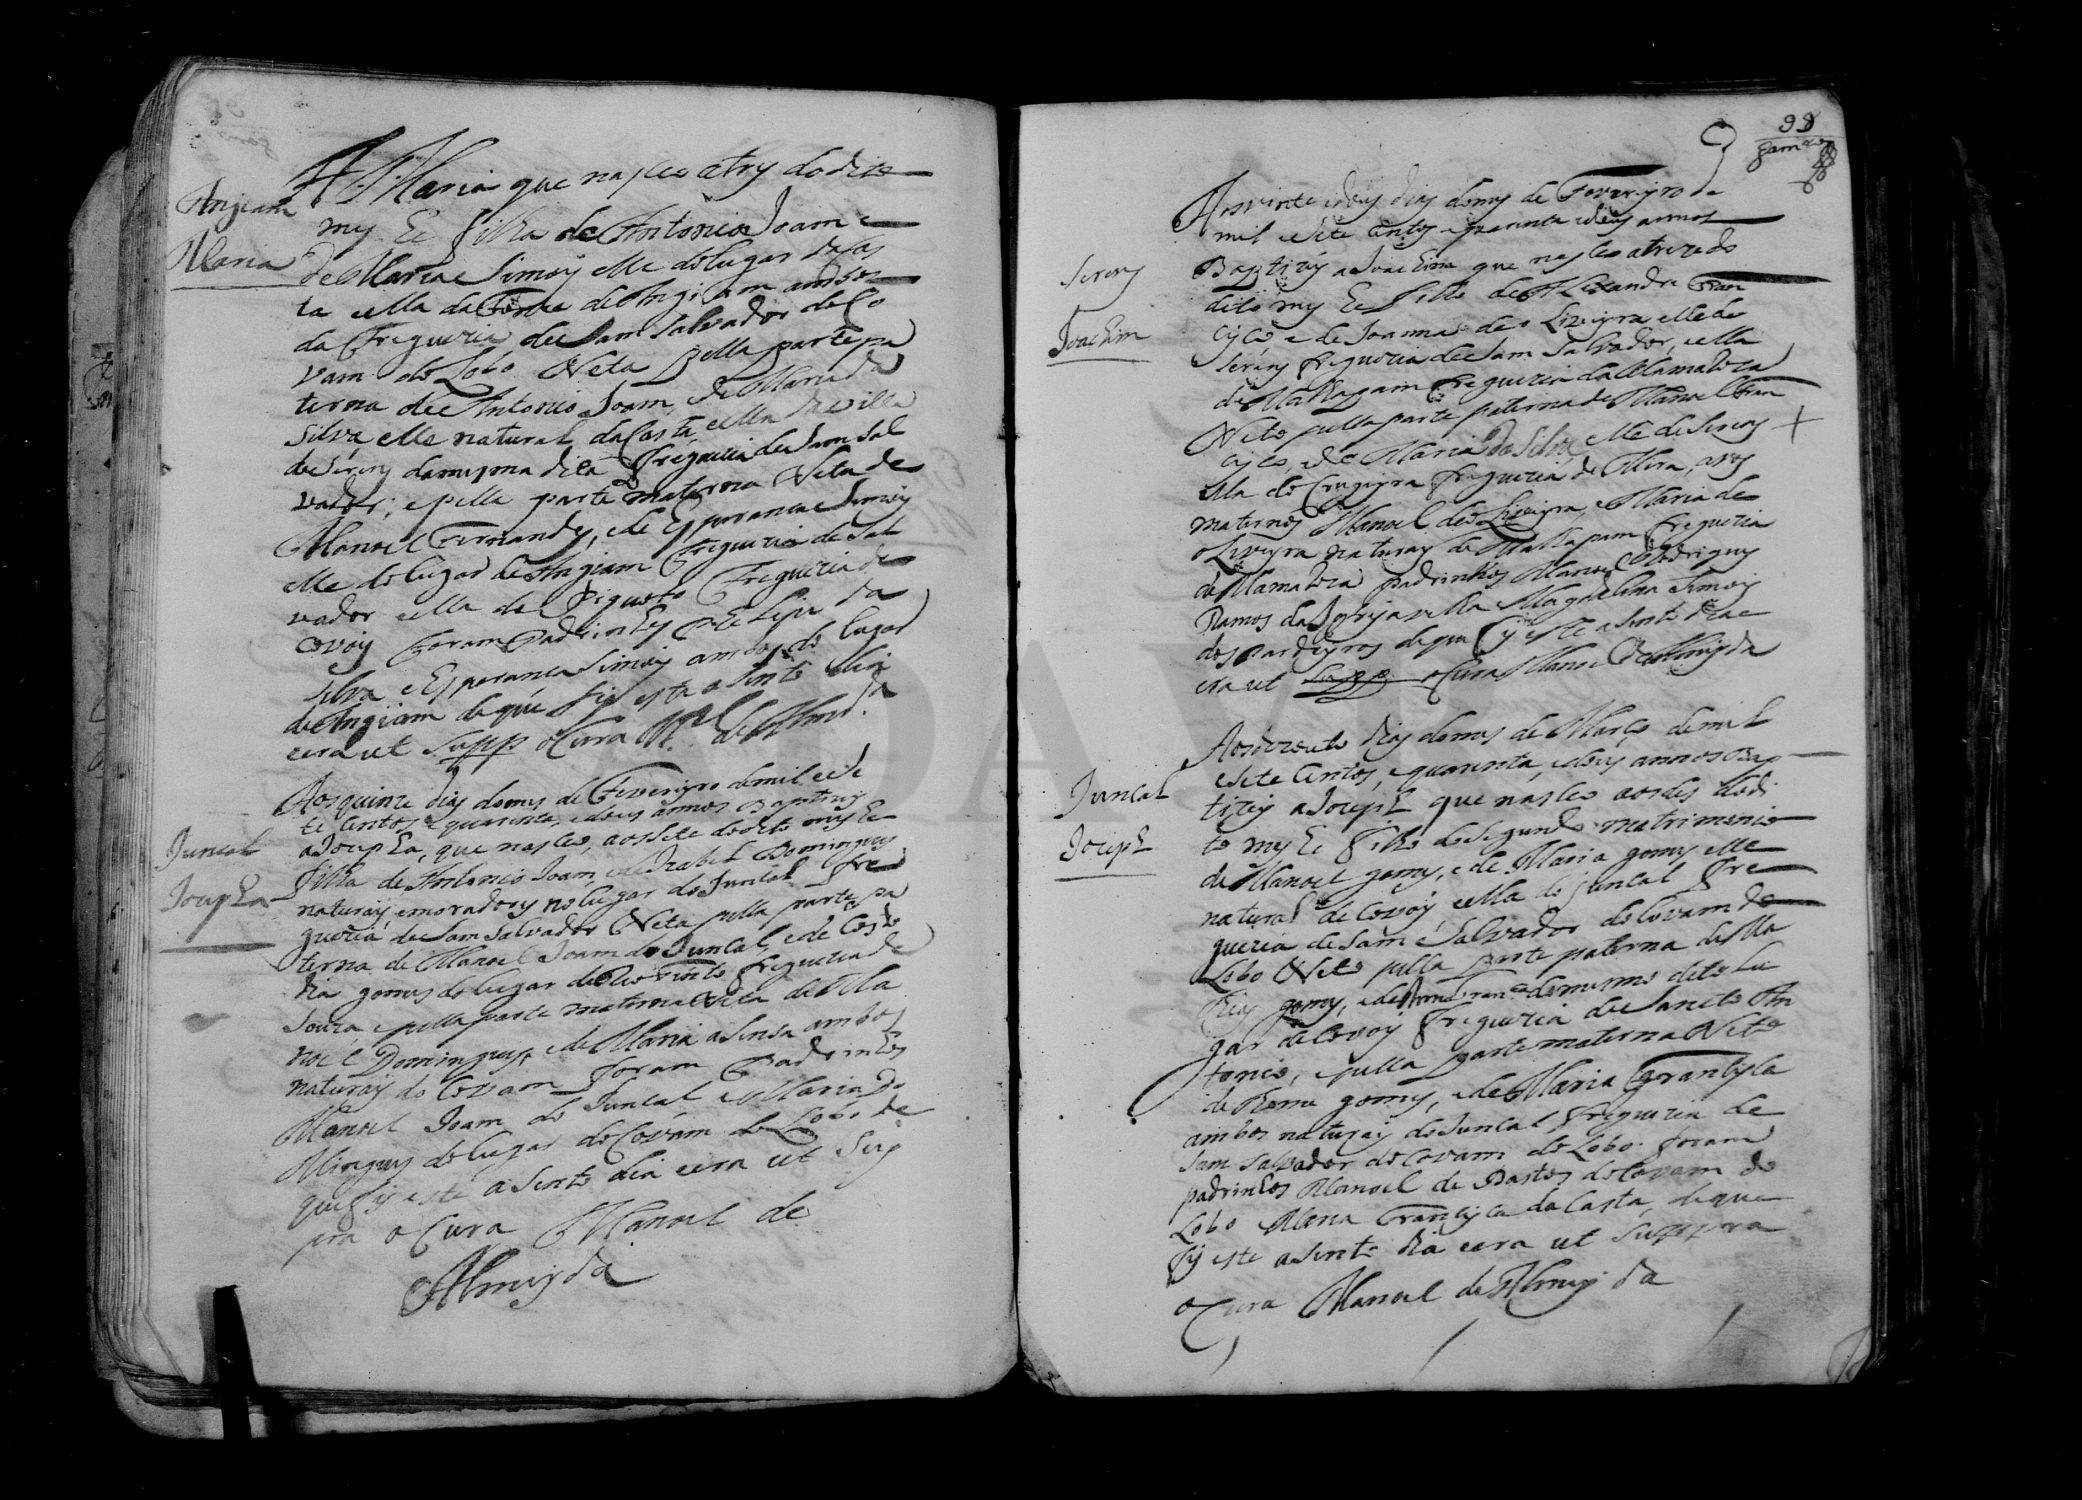 Anjeam
Maria
A Maria que nasceo atrys do dito
mes he filha de Antonio Joam e
de Maria Simois elle do lugar da Cos
ta ella da Fonte de Angiam ambos
da Freguezia de Sam Salvador do Co
vam do Lobo Neta pella parte pa
terna de Antonio Joam e de Maria da
Silva elle natural da Costa, ella da villa
de Serem da mesma dita Freguezia de Sam Sal
vador, e pella parte materna Neta de
Manoel Fernandes, e de Esperanca Simois
elle do lugar de Angiam Freguezia de Sal
vador ella de Freguezia de
Covois foram Padrinhos Phelipe da
Silva e Esperanca Simois ambos do lugar
de Angiam de que fis este asento dia
cera ut supp o Cura Mel de Almda
Juncal
Josepha
Aos quinze dias do mes de Fevereyro de mil e se
te centos e quarenta, e dous annos Baptizey
a Josepha, que nasceo, aos sete do dito mes he
filha de Antonio Joam, e de Izabel Domingues
naturais, e moradores no lugar do Juncal Fre
guezia de Sam Salvador Neta pella parte pa
terna de Manoel Joam do Juncal, e de Custo
dia gomes do lugar de Freguezia de
Souza e pella parte materna Neta de Ma
noel Domingues, e de Maria asensa ambos
naturais do Covam foram Padrinhos
Manoel Joam do Juncal e Maria Do
Mingues do lugar do Covam do Lobo de
que fis este asento dia cera ut sup
pra o Cura Manoel de
Almeyda
99
Serem
Joachim
Aos vinte e dous dias do mes de Fevereyro de
mil e sete centos e quarenta e dous annos
Baptizey a Joachim que nasceo atreze do
dito mes he filho de Alexandre Fran
cisco e de Joanna de oLiveyra elle de
Serem freguezia de Sam Salvador, e ella
de Mattapam freguezia da Mamaroza
Neto pella parte paterna de Manoel Fran
cisco, e de Maria da Silva elle de Serem
ella do Freguezia de Mira, avos
maternos Manoel de oLiveyra, e Maria de
oLiveyra naturais de Mattapam freguezia
da Mamaroza padrinhos Manoel Rodrigues
Ramos da Igreja velha e Magdalena Simois
dos Pardeyros de que fis este asento dia e
era ut Supp o Cura Manoel de Almeyda
Juncal
Joseph
Aos dezoito dias do mes de Março de mil
e sete centos, e quarenta, e dous annos Bap
tizey a Joseph que nasceo aos des do di
to mes he filho do segundo matrimonio
de Manoel gomes, e de Maria gomes elle
natural de Covois, e ella do Juncal Fre
guezia de Sam Salvador do Covam do
Lobo Neto pella parte paterna de Ma
thias gomes, e de Anna Franca do mesmo dito lu
gar de Covois Freguezia de Sancto An
tonio, e pella parte materna Neto
de Bento gomes, e de Maria Francisca
ambos naturais do Juncal Freguezia de
Sam Salvador do Covam do Lobo foram
padrinhos Manoel de Bastos do Covam do
Lobo e Maria Francisca da Costa, de que
fis este asento dia cera ut suppra
o Cura Manoel de Almeyda